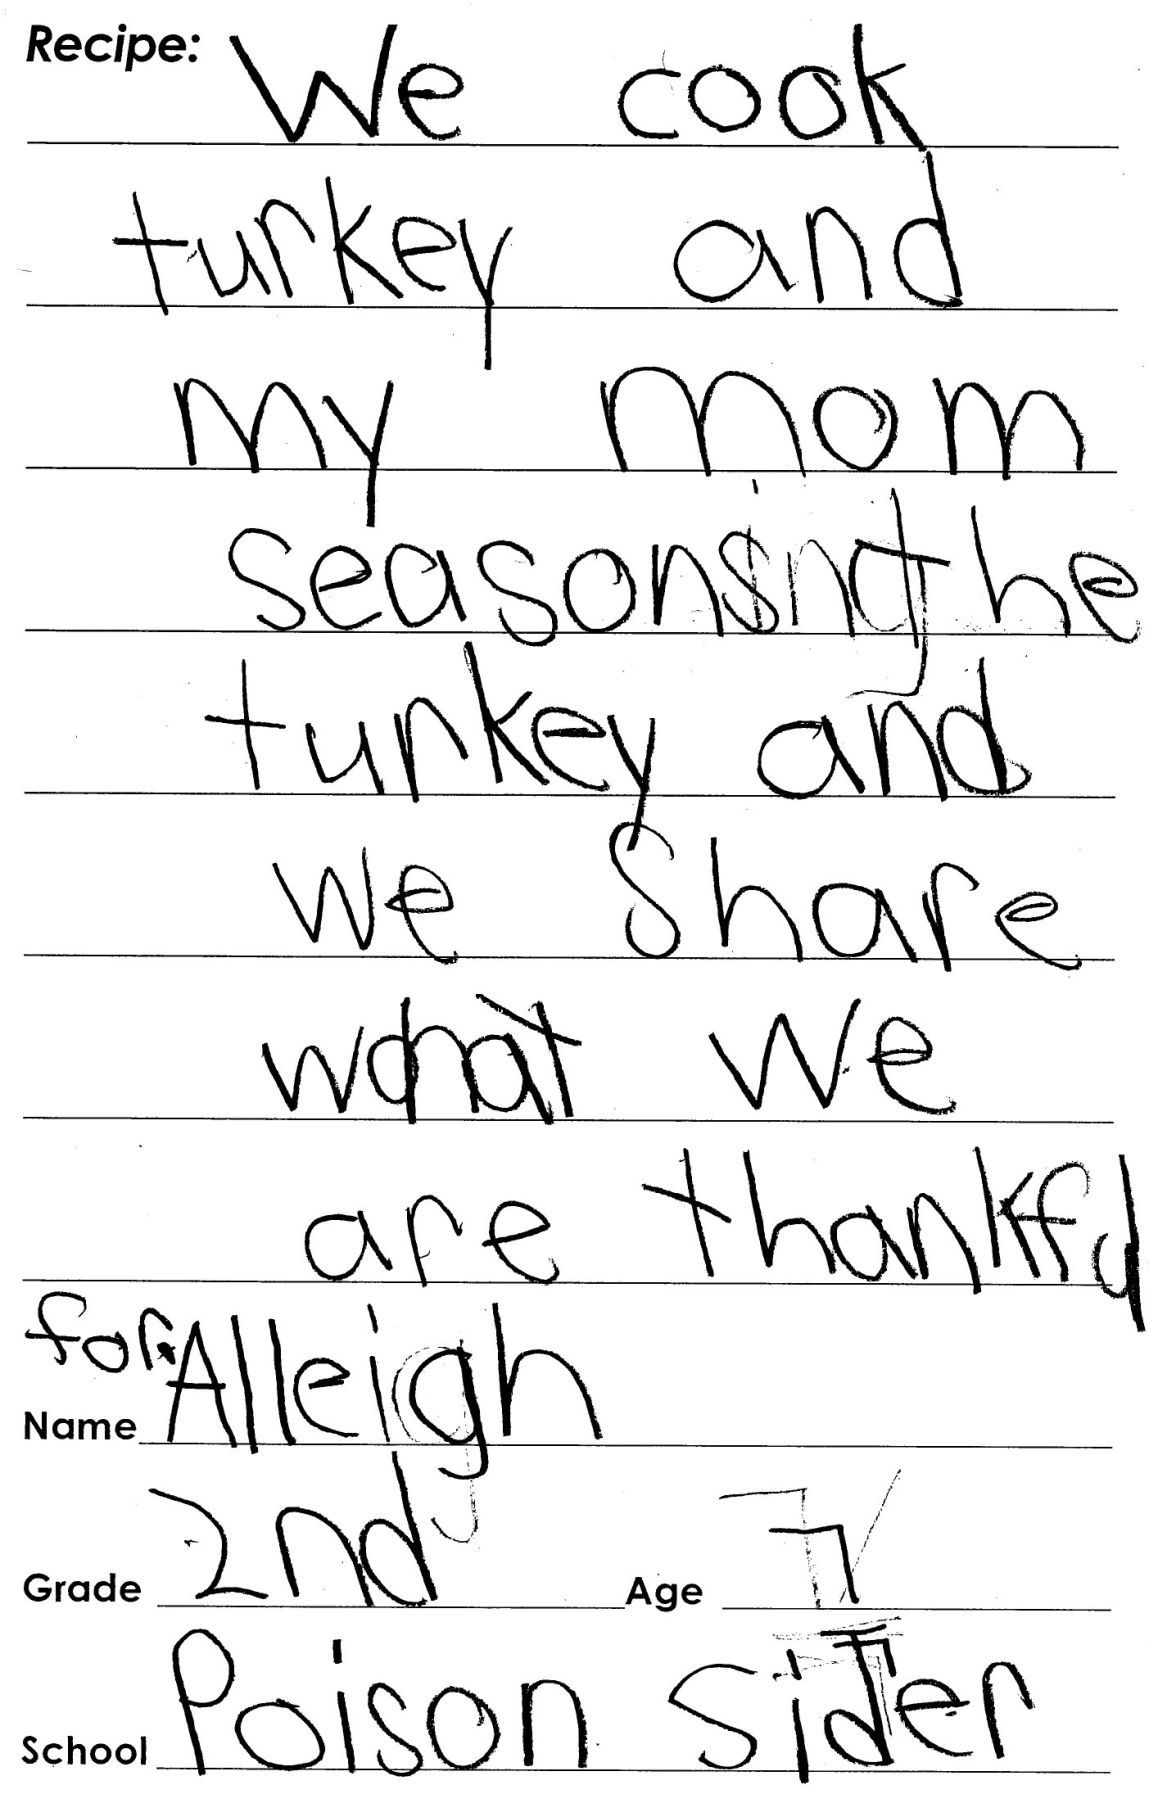 Recipe: We cook
turkey and
my mom
seasons the
turkey and
we Share
what we
are thankful
for.
Name Alleigh
Grade 2nd Age 7
School Poison Sider